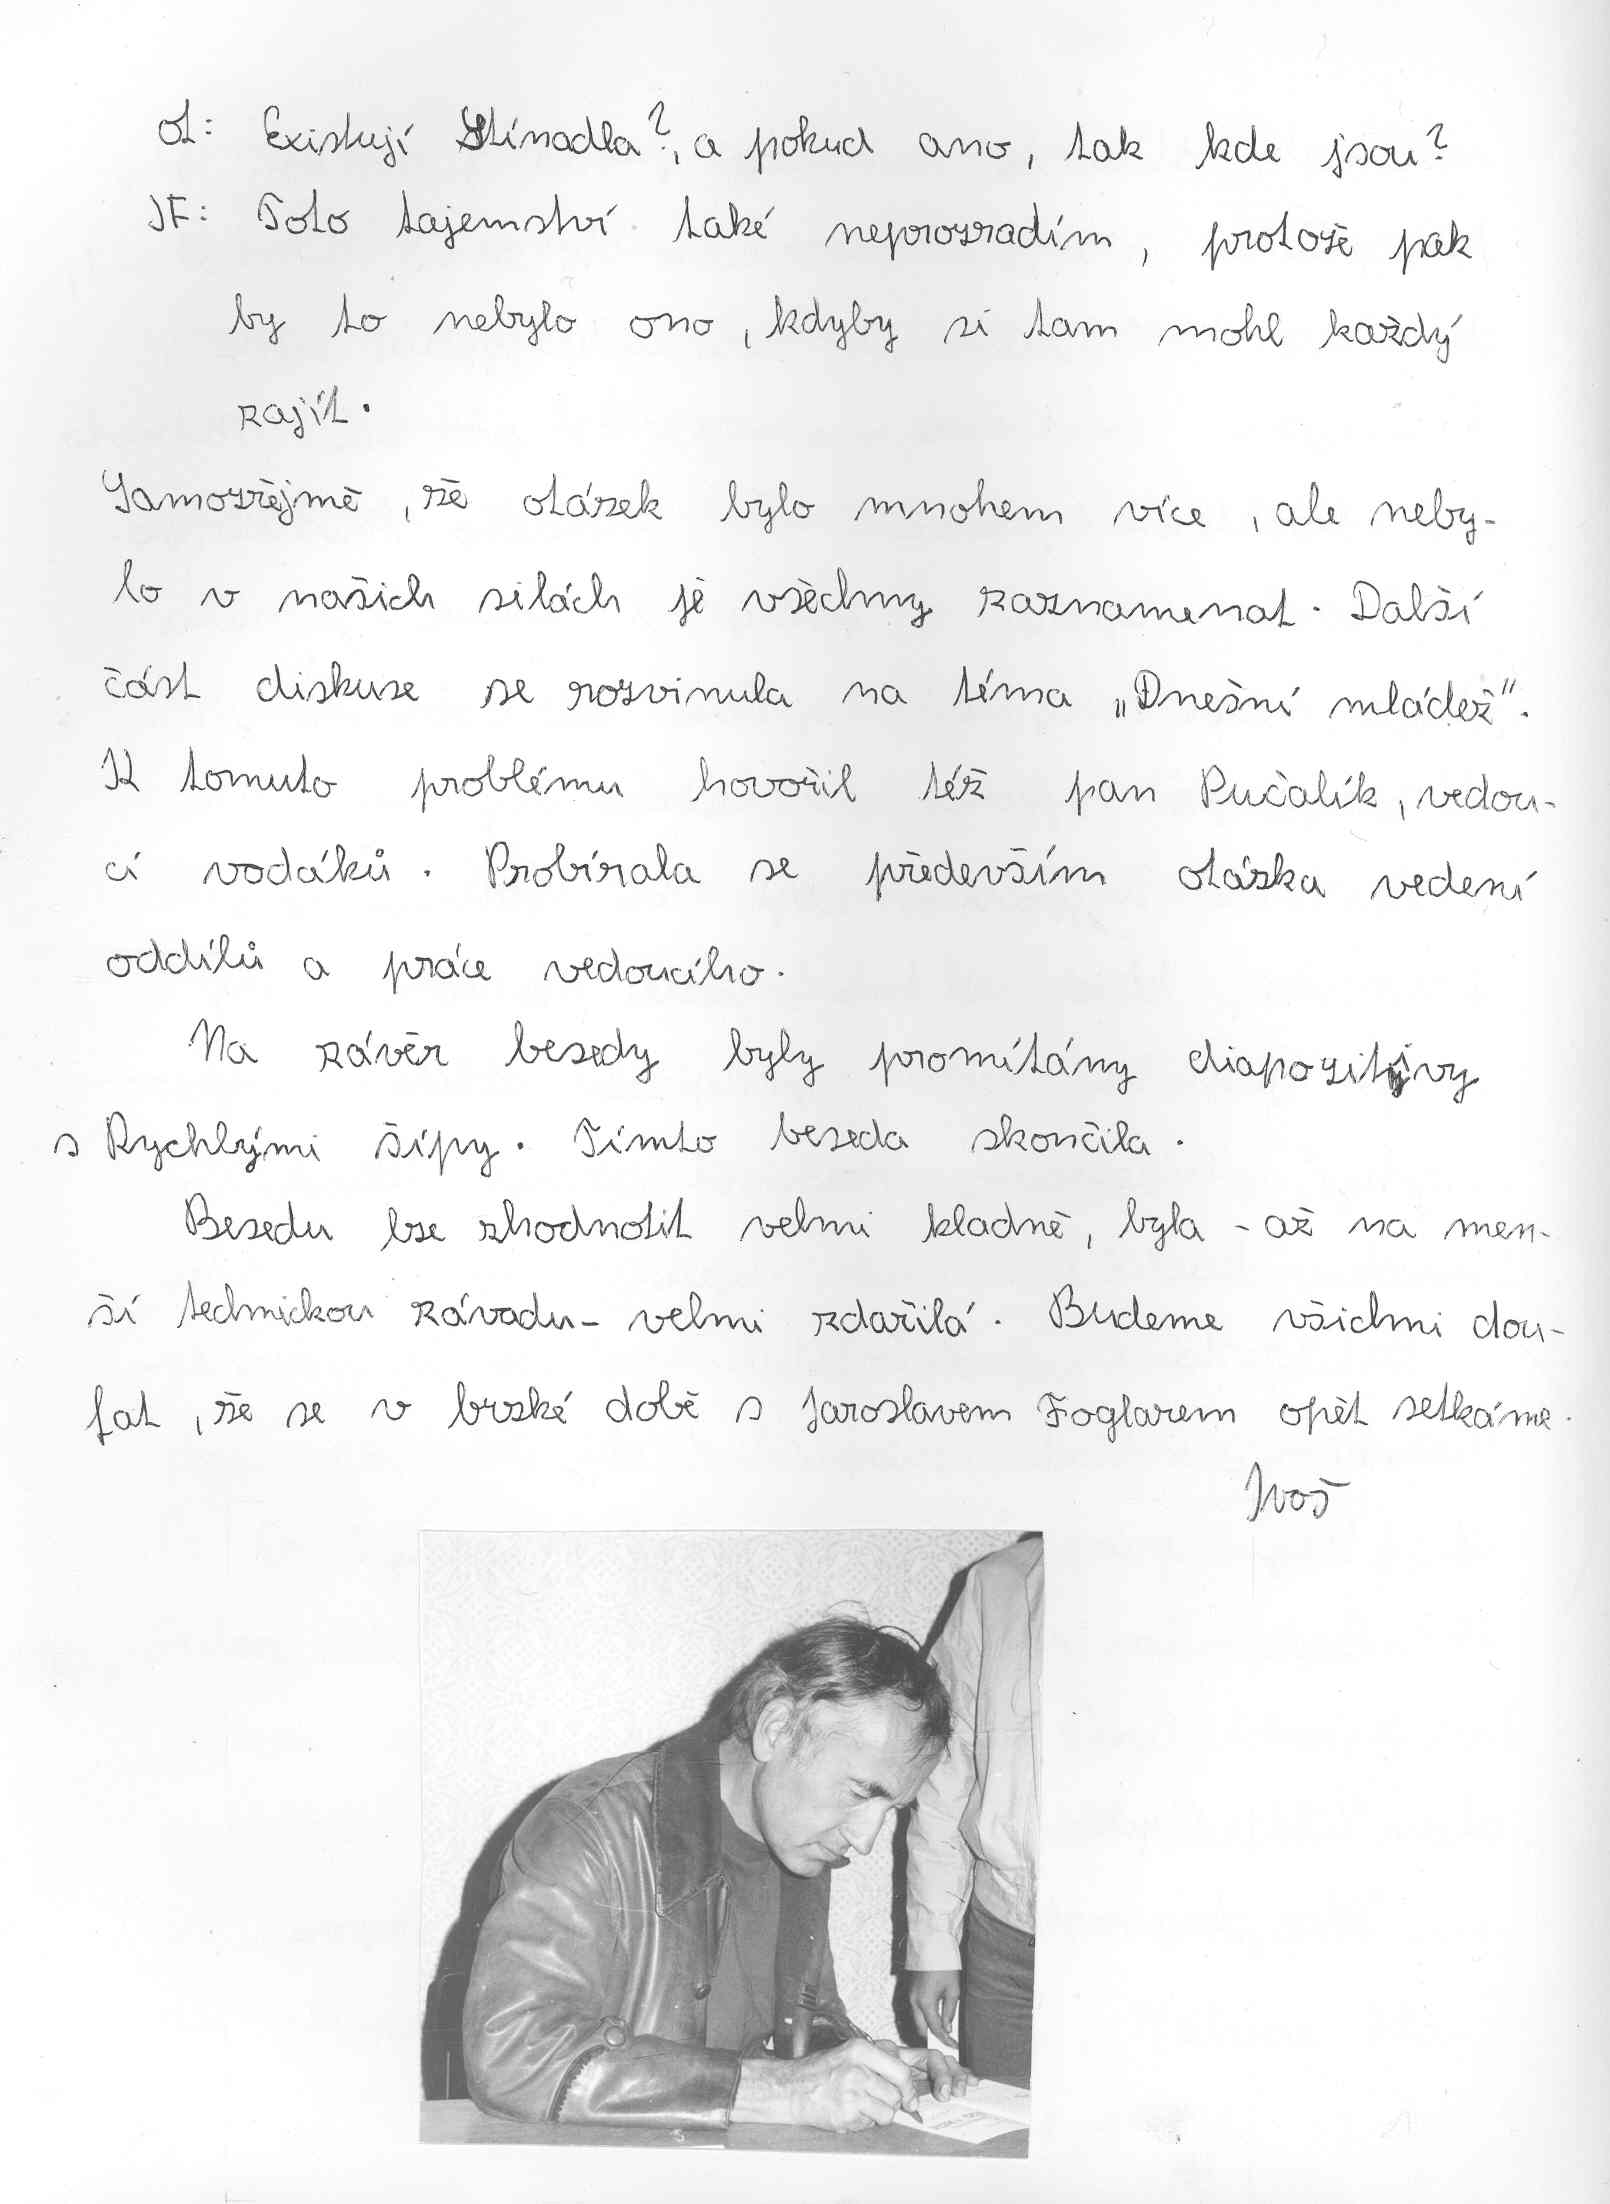 Ot: Existují Stínadla?, a pokud ano, tak kde jsou?
JF: Toto tajemství také neprozradím, protože pak
by to nebylo ono, kdyby si tam mohl každý
zajít.
Samozřějmě, že otázek bylo mnohem více, ale neby-
lo v našich silách je všechny zaznamenat. Další
část diskuse se rozvinula na téma „Dnešní mládež".
K tomuto problému hovořil též pan Pučalík, vedou-
cí vodáků. Probírala se především otázka vedení
oddílů a práce vedoucího.
Na závěr besedy byly promítány diapozitivy
s Rychlými šípy. Tímto beseda skončila.
Besedu lze zhodnotit velmi kladně, byla - až na men-
ší technickou závadu - velmi zdařilá. Budeme všichni dou-
fat, že se v brzké době s Jaroslavem Foglarem opět setkáme.
Ivoš